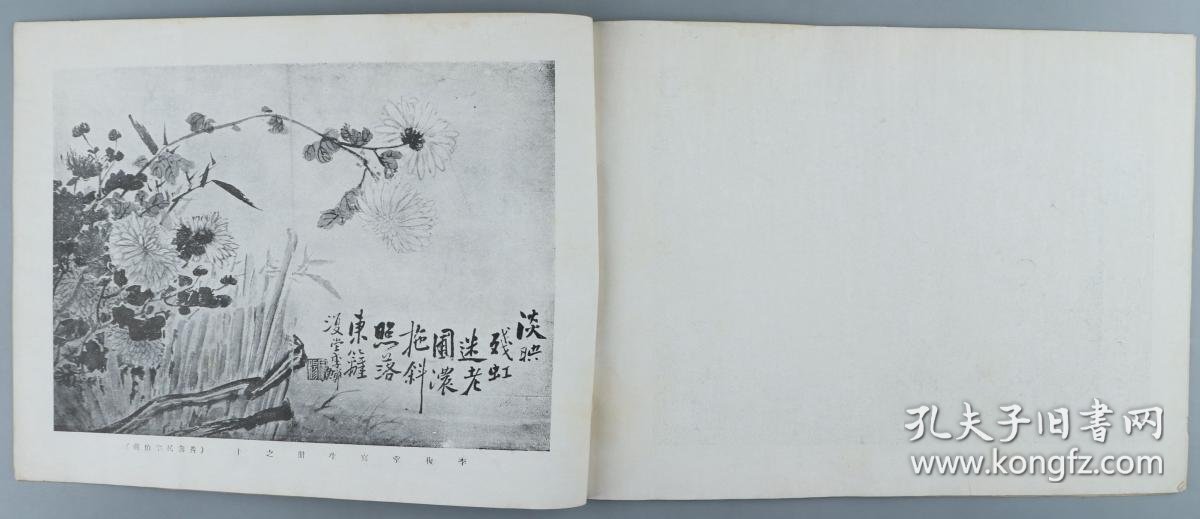 淡映
残虹
迷老
圃濃
拖斜
照落
東籬
復堂李鱓
李復堂寫生册之十
孔夫子旧書网
www.kongfz.com